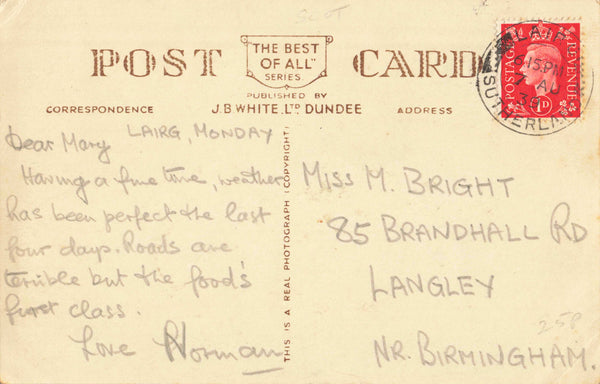 SCOT
POST CARD
"THE BEST
OF ALL"
SERIES
PUBLISHED BY
J.B. WHITE. LTD DUNDEE
CORRESPONDENCE
ADDRESS
LAIRG, MONDAY
Dear Mary
Having a fine time, weather
has been perfect the last
four days. Roads are
terrible but the food's
first class.
Love Norman
THIS IS A REAL PHOTOGRAPH (COPYRIGHT)
MISS M. BRIGHT
85 BRANDHALL RD
LANGLEY
NR. BIRMINGHAM.
258
LAIRG
6.15 PM
7 AU
SUTHERLAND
POSTAGE
REVENUE
1D